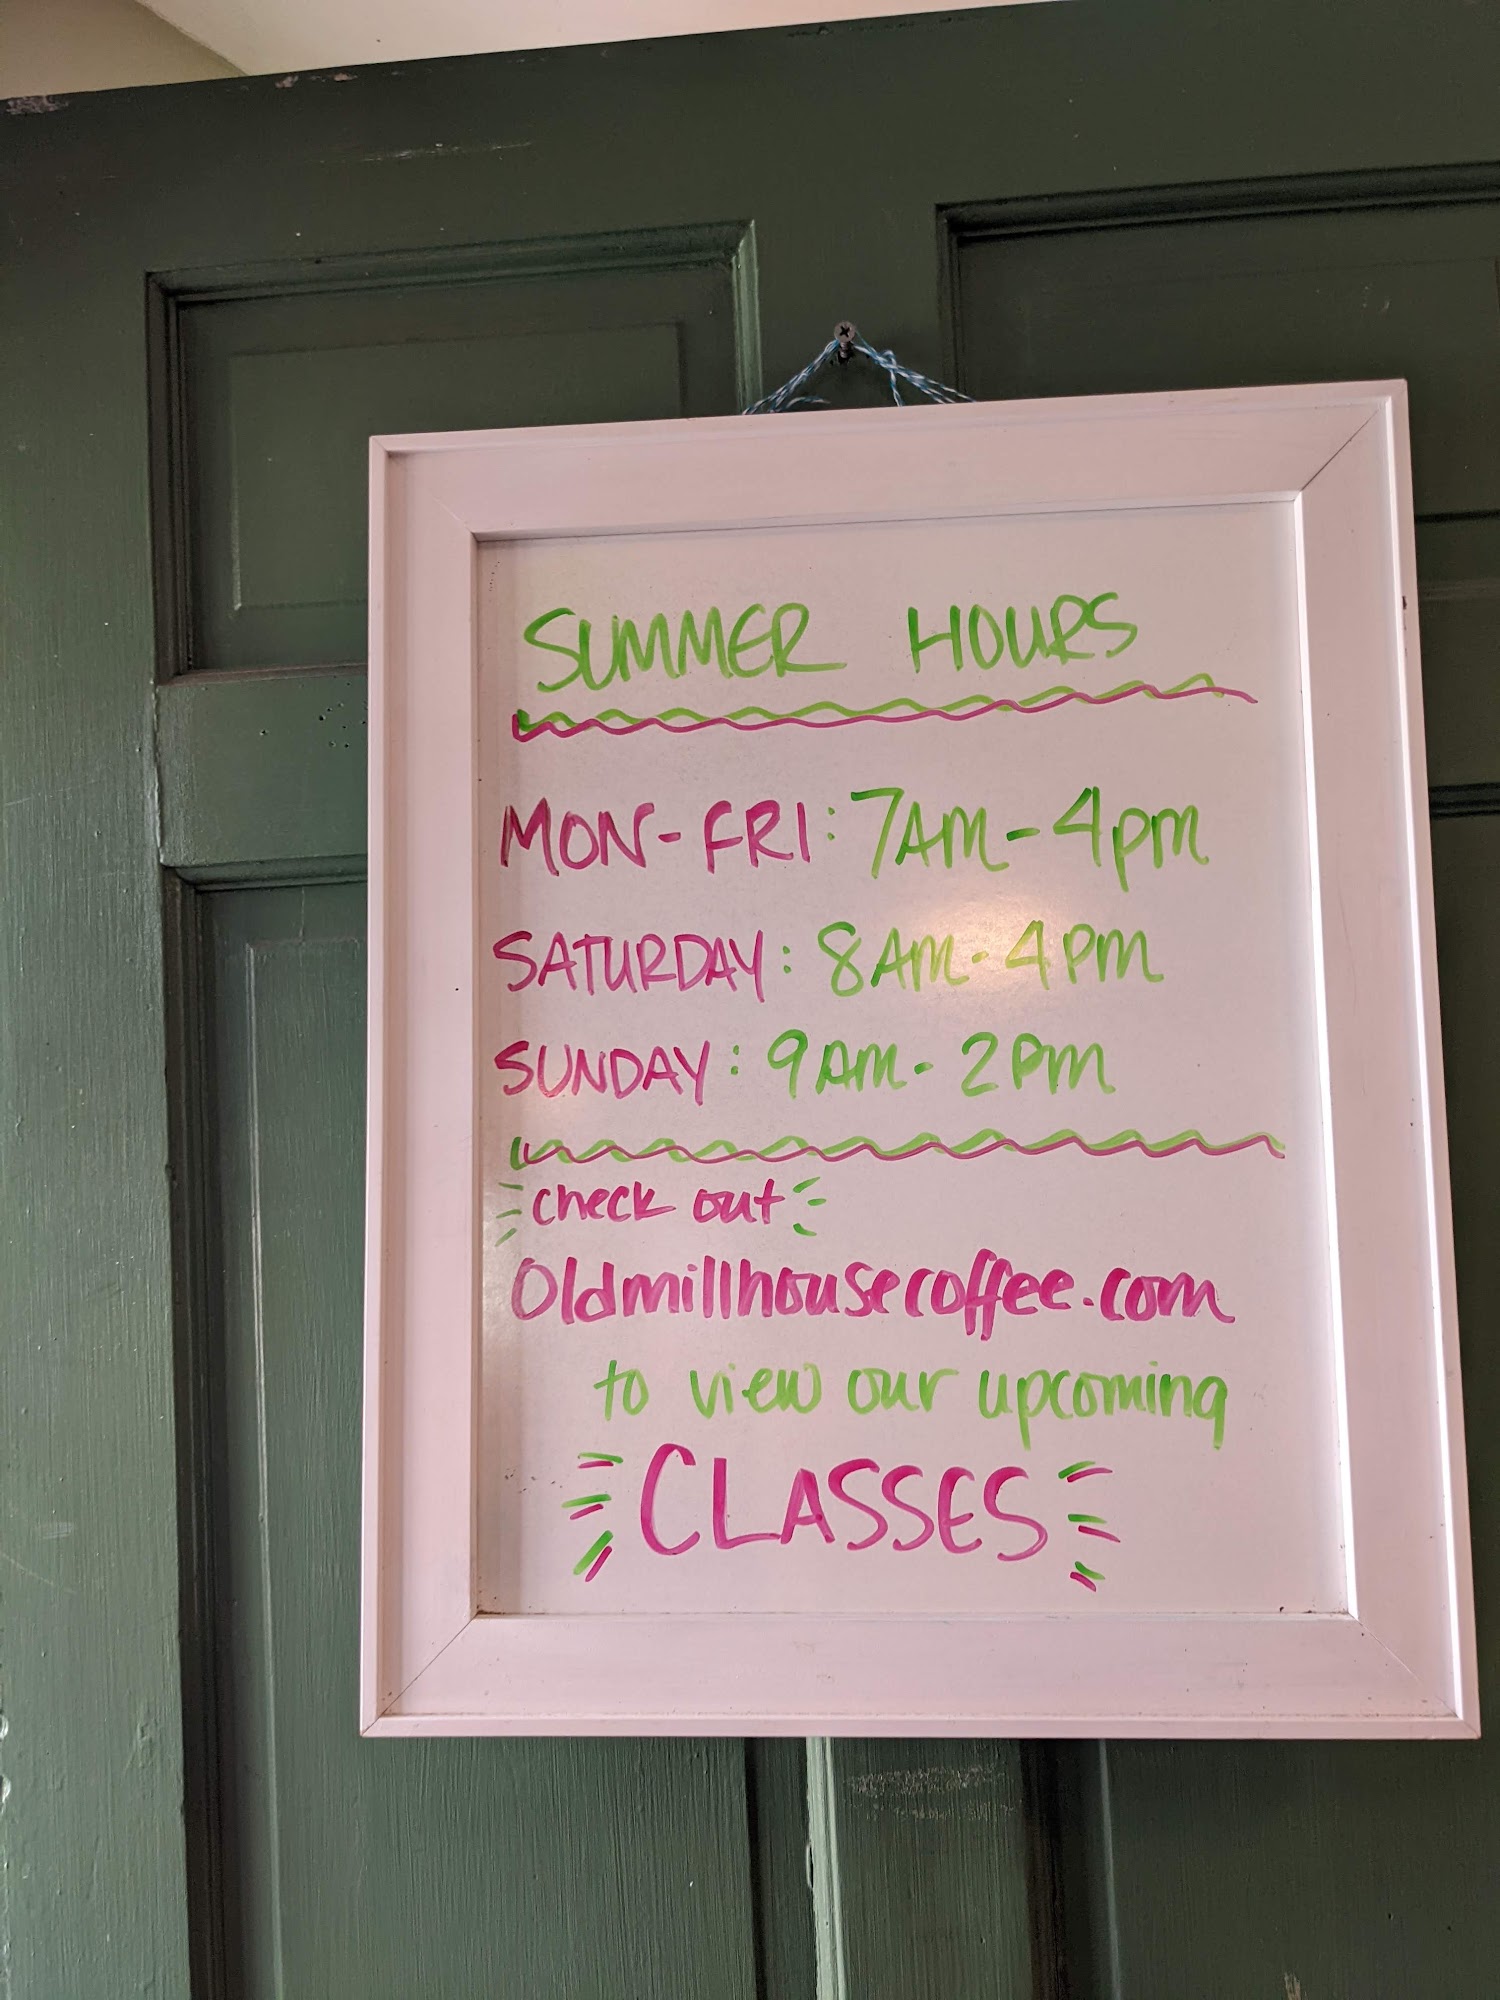 SUMMER HOURS
MON-FRI: 7AM-4pm
SATURDAY: 8AM-4PM
SUNDAY: 9AM-2PM
check out
Oldmillhousecoffee.com
to view our upcoming
CLASSES